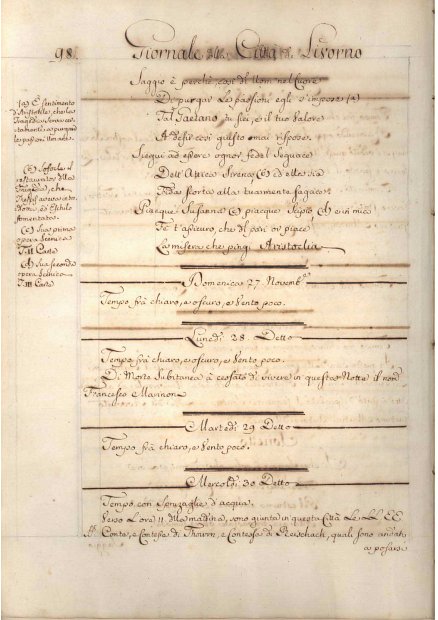 98. Giornale di Città di Livorno
Saggio è perchè, così di Uom nel Cuore
Di purgar le passioni egli s'impose (a)
Tal Gaetano tu sei, e il tuo Valore
A desir così giusto omai rispose.
Siegui ad essere ognor fedel Seguace
Dell' Attica Sirena (b) ed ella sia
Fida scorta alla tua mente sagace.
Piacque Susanna (c) piacque Scipio (d) e in mio
Te t'assicuro, che di par or piace
La misera che pingi Aristoclia
(a) È sentimento
d'Aristotele, che la
Tragedia
le passioni Umane.
(b) Sofocle il
restaurator della
Tragedia, che
Tespi aveva
da Eschilo
fomentata.
(c) Sua prima
opera Scenica
(d) Sua seconda
opera Scenica
Domenica 27 Novemb.e
Tempo frà chiaro, e oscuro, e Vento poco.
Lunedì 28 Detto
Tempo frà chiaro, e oscuro, e Vento poco.
Di Morte Subitanea à cessato di vivere in questa Notte il
Francesco Marinon
Martedì 29 Detto
Tempo frà chiaro, e Vento poco.
Mercoldì 30 Detto
Tempo con Spruzaglie d'acqua.
Verso l'ore 11 della matina, sono giunti in questa Città Le LL. EE.
Conte, e Contessa di Thurn, e Contessa di quali sono andati
a posare